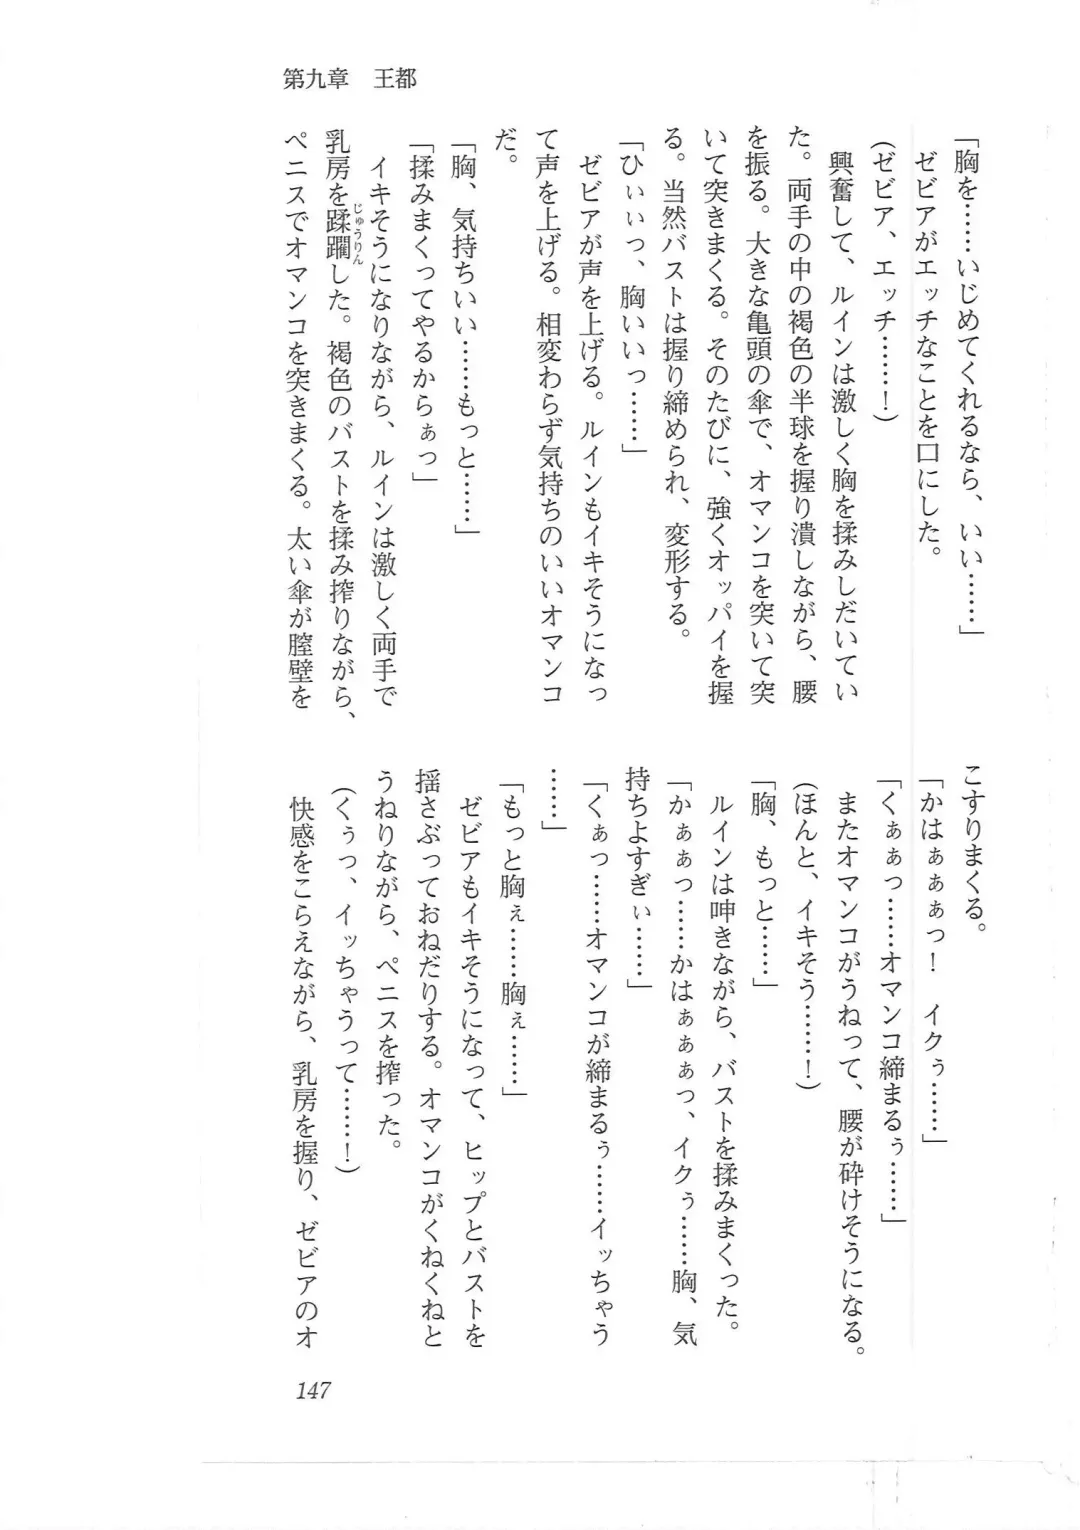 第九章　王都
「胸を……いじめてくれるなら、いい……」
ゼビアがエッチなことを口にした。
(ゼビア、エッチ……！)
興奮して、ルインは激しく胸を揉みしだいてい
た。両手の中の褐色の半球を握り潰しながら、腰
を振る。大きな亀頭の傘で、オマンコを突いて突
いて突きまくる。そのたびに、強くオッパイを握
る。当然バストは握り締められ、変形する。
「ひぃぃっ、胸いいっ……」
ゼビアが声を上げる。ルインもイキそうになっ
て声を上げる。相変わらず気持ちのいいオマンコ
だ。
「胸、気持ちいい……もっと……」
「揉みまくってやるからぁっ」
イキそうになりながら、ルインは激しく両手で
乳房を蹂躙じゅうりんした。褐色のバストを揉み搾りながら、
ペニスでオマンコを突きまくる。太い傘が膣壁を
こすりまくる。
「かはぁぁぁっ！　イクぅ……」
「くぁぁっ……オマンコ締まるぅ……」
またオマンコがうねって、腰が砕けそうになる。
(ほんと、イキそう……！)
「胸、もっと……」
ルインは呻きながら、バストを揉みまくった。
「かぁぁっ……かはぁぁぁっ、イクぅ……胸、気
持ちよすぎぃ……」
「くぁっ……オマンコが締まるぅ……イッちゃう
……」
「もっと胸ぇ……胸ぇ……」
ゼビアもイキそうになって、ヒップとバストを
揺さぶっておねだりする。オマンコがくねくねと
うねりながら、ペニスを搾った。
(くぅっ、イッちゃうって……！)
快感をこらえながら、乳房を握り、ゼビアのオ
147